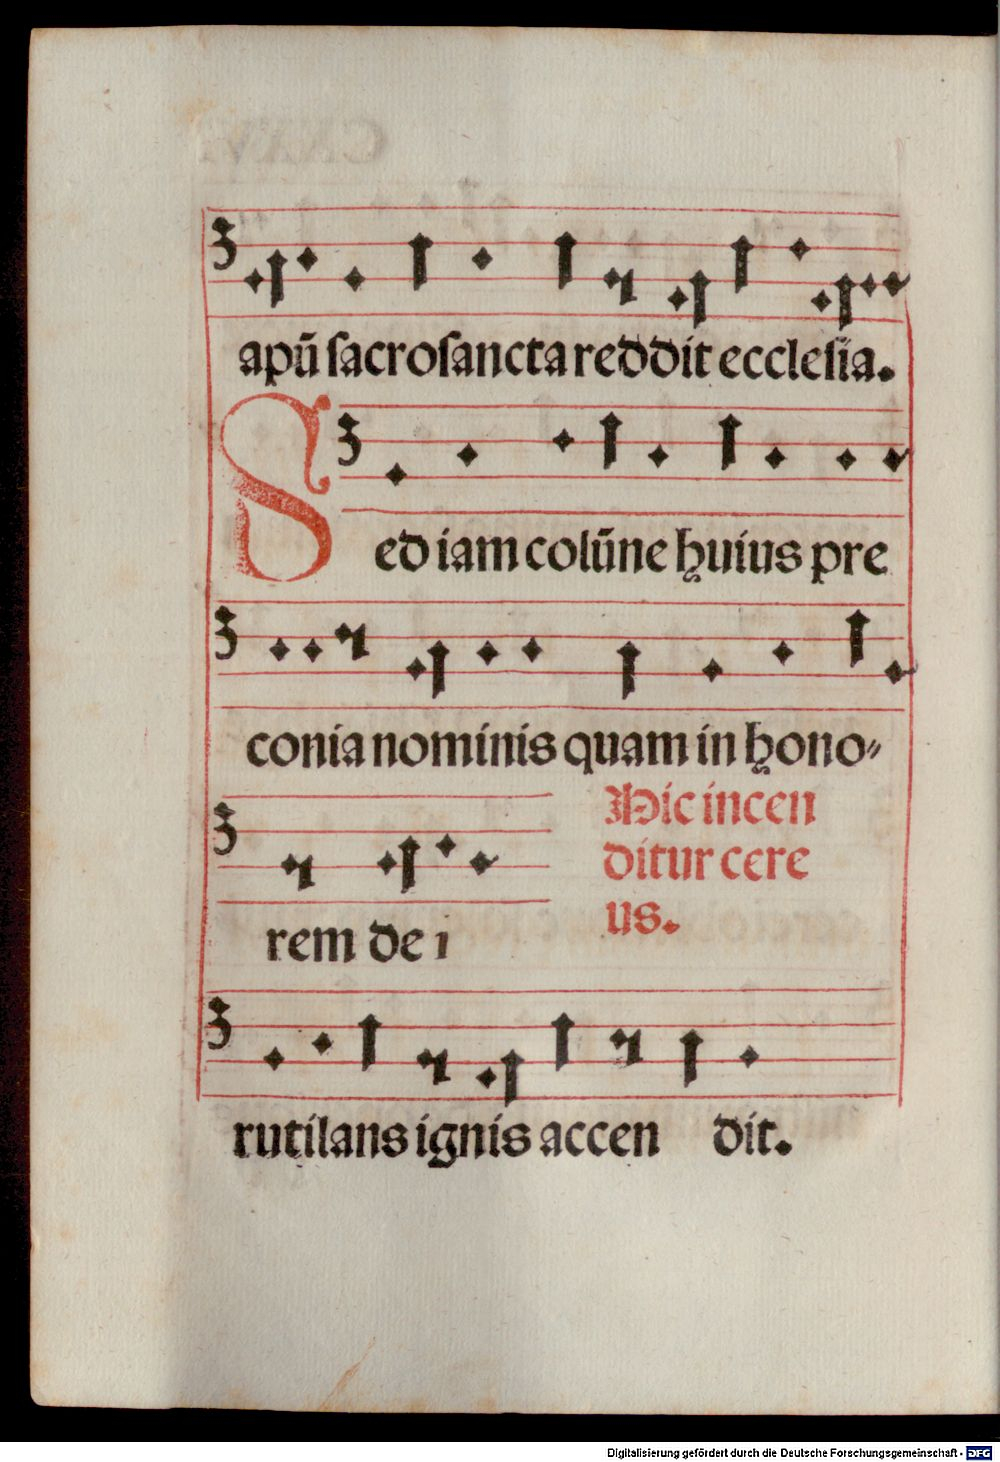 apū sacrosancta reddit ecclesia.
Sed iam colūne huius pre
conia nominis quam in hono⸗
Hic incen
ditur cere
us.
rem de i
rutilans ignis accen dit.
Digitalisierung gefördert durch die Deutsche Forschungsgemeinschaft - DFG